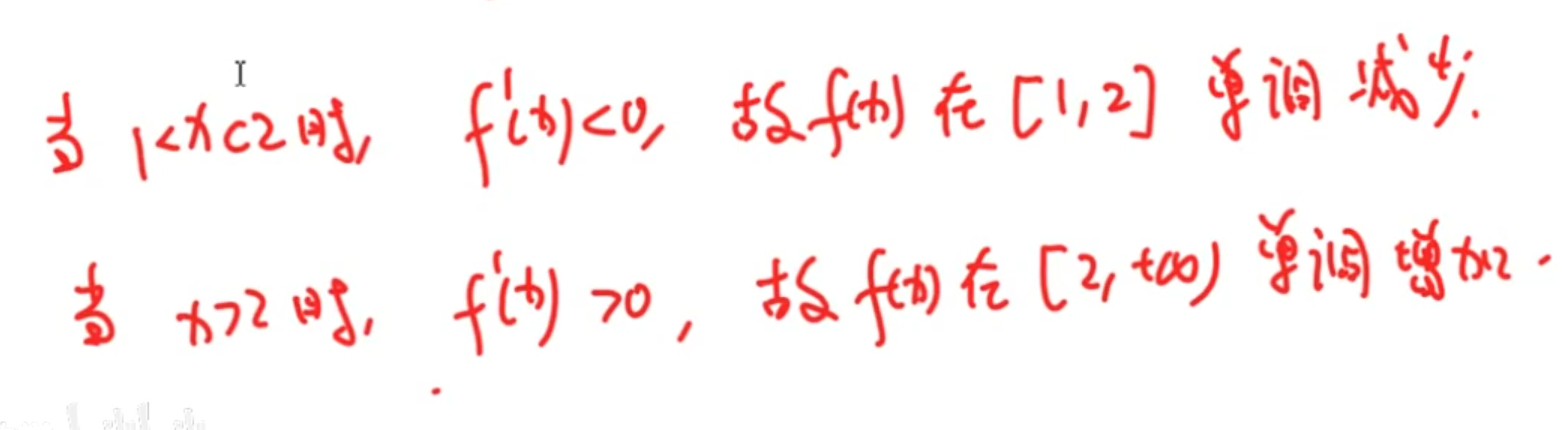 当 1<x<2时, f'(x)<0, 故f(x) 在 [1,2] 单调 减少.
当 x>2 时, f'(x) >0, 故 f(x) 在 [2,+∞) 单调 增加.